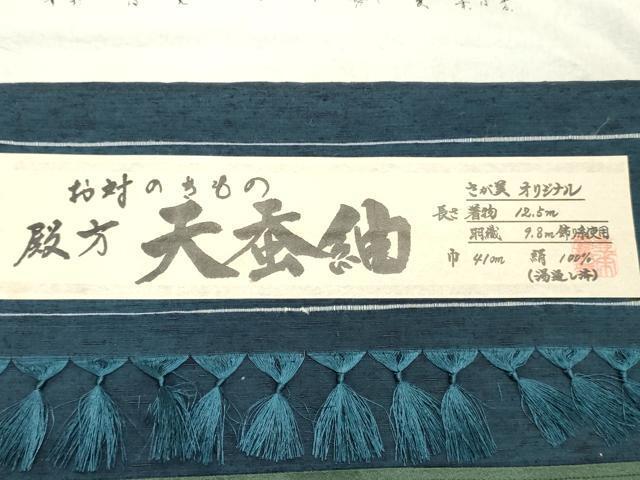 お対のきもの
殿方 天蚕紬
さが美 オリジナル
長さ 着物 12.5m
羽織 9.8m 飾り糸使用
巾 41cm 絹 100%
(湯通し済)